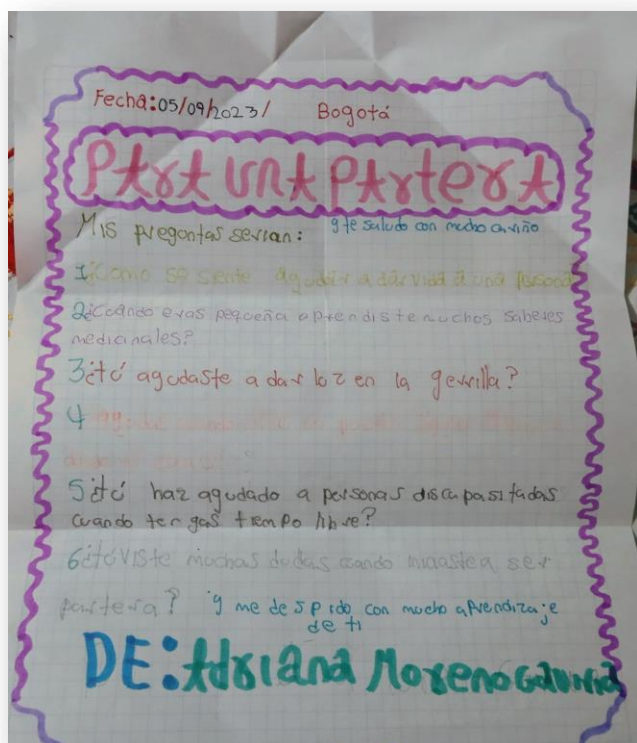 Fecha:05/09/2023/ Bogotá
PARA UNA PARTERA
Mis pregontas serian: y te saludo con mucho cariño
1¿Como se siente agudar a dar vida a una persona
2¿Cuando eras pequeña aprendiste muchos saberes
medicinales?
3¿tú agudaste a dar loz en la gerrilla?
4
5¿tú haz agudado a personas discapasitadas
cuando tengas tiempo libre?
6¿tóviste muchas dudas cuando iniciaste a ser
partera? y me despido con mucho aprendizaje
de ti
DE: Adriana Moreno